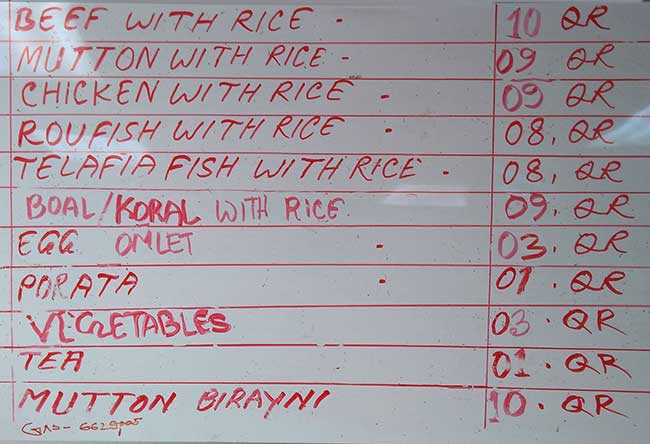 BEEF WITH RICE - 10 QR
MUTTON WITH RICE - 09 QR
CHICKEN WITH RICE - 09 QR
ROUFISH WITH RICE - 08. QR
TELAFIA FISH WITH RICE - 08. QR
BOAL/KORAL WITH RICE 09. QR
EGG OMLET - 03. QR
PORATA - 01 QR
VEGETABLES 03 . QR
TEA 01 . QR
MUTTON BIRAYNI 10 . QR